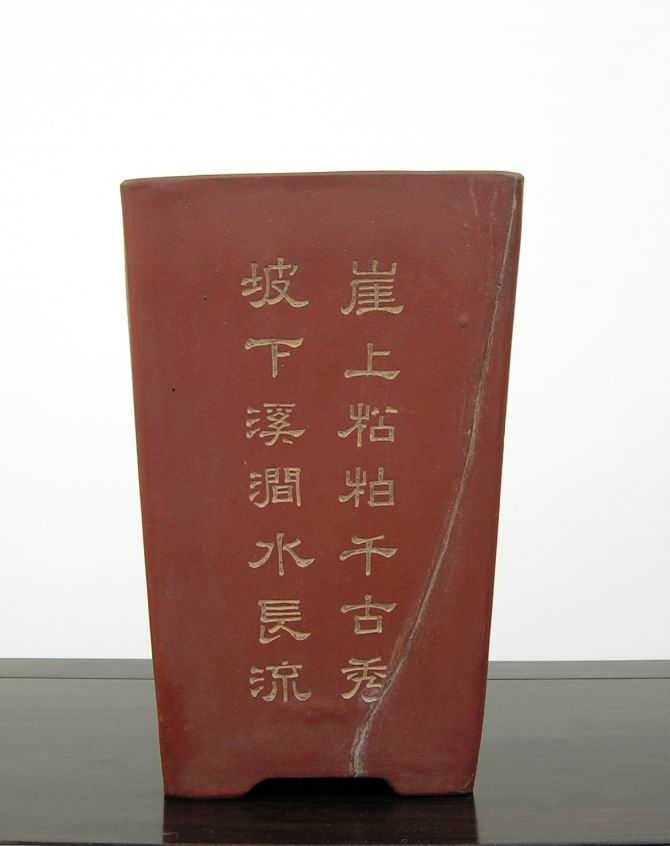 崖上松柏千古秀
坡下溪澗水長流